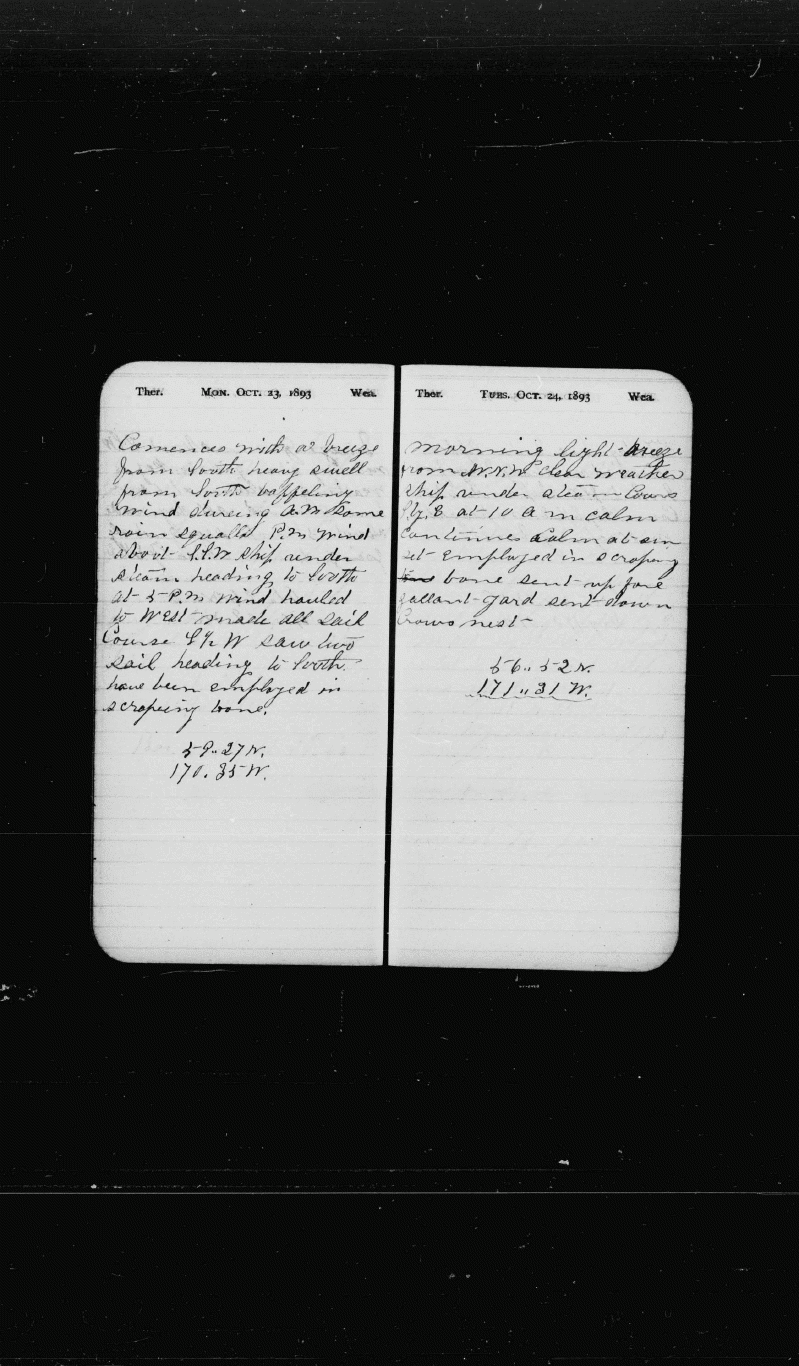 Ther. MON. OCT. 23, 1893 Wea.
Comences with a breeze
from South heavy swell
from South baffeling
wind dureing A.M some
rain squalls P.M wind
about S.S.W ship under
steam heading to South
at 5 P.M wind hauled
to West made all sail
Course S½W saw two
sail heading to South
have been employed in
scrapeing bone.
59..27 N.
170.35 W.
Ther. TUES. OCT. 24, 1893 Wea.
Morning light breeze
from N.N.W clear weather
ship under steam Cours
S½E at 10 A m calm
Continues Calm at sun
set Employed in scrapeing
bone sent up fore
gallant yard sent down
Crows nest
56..52 N.
171..31 W.